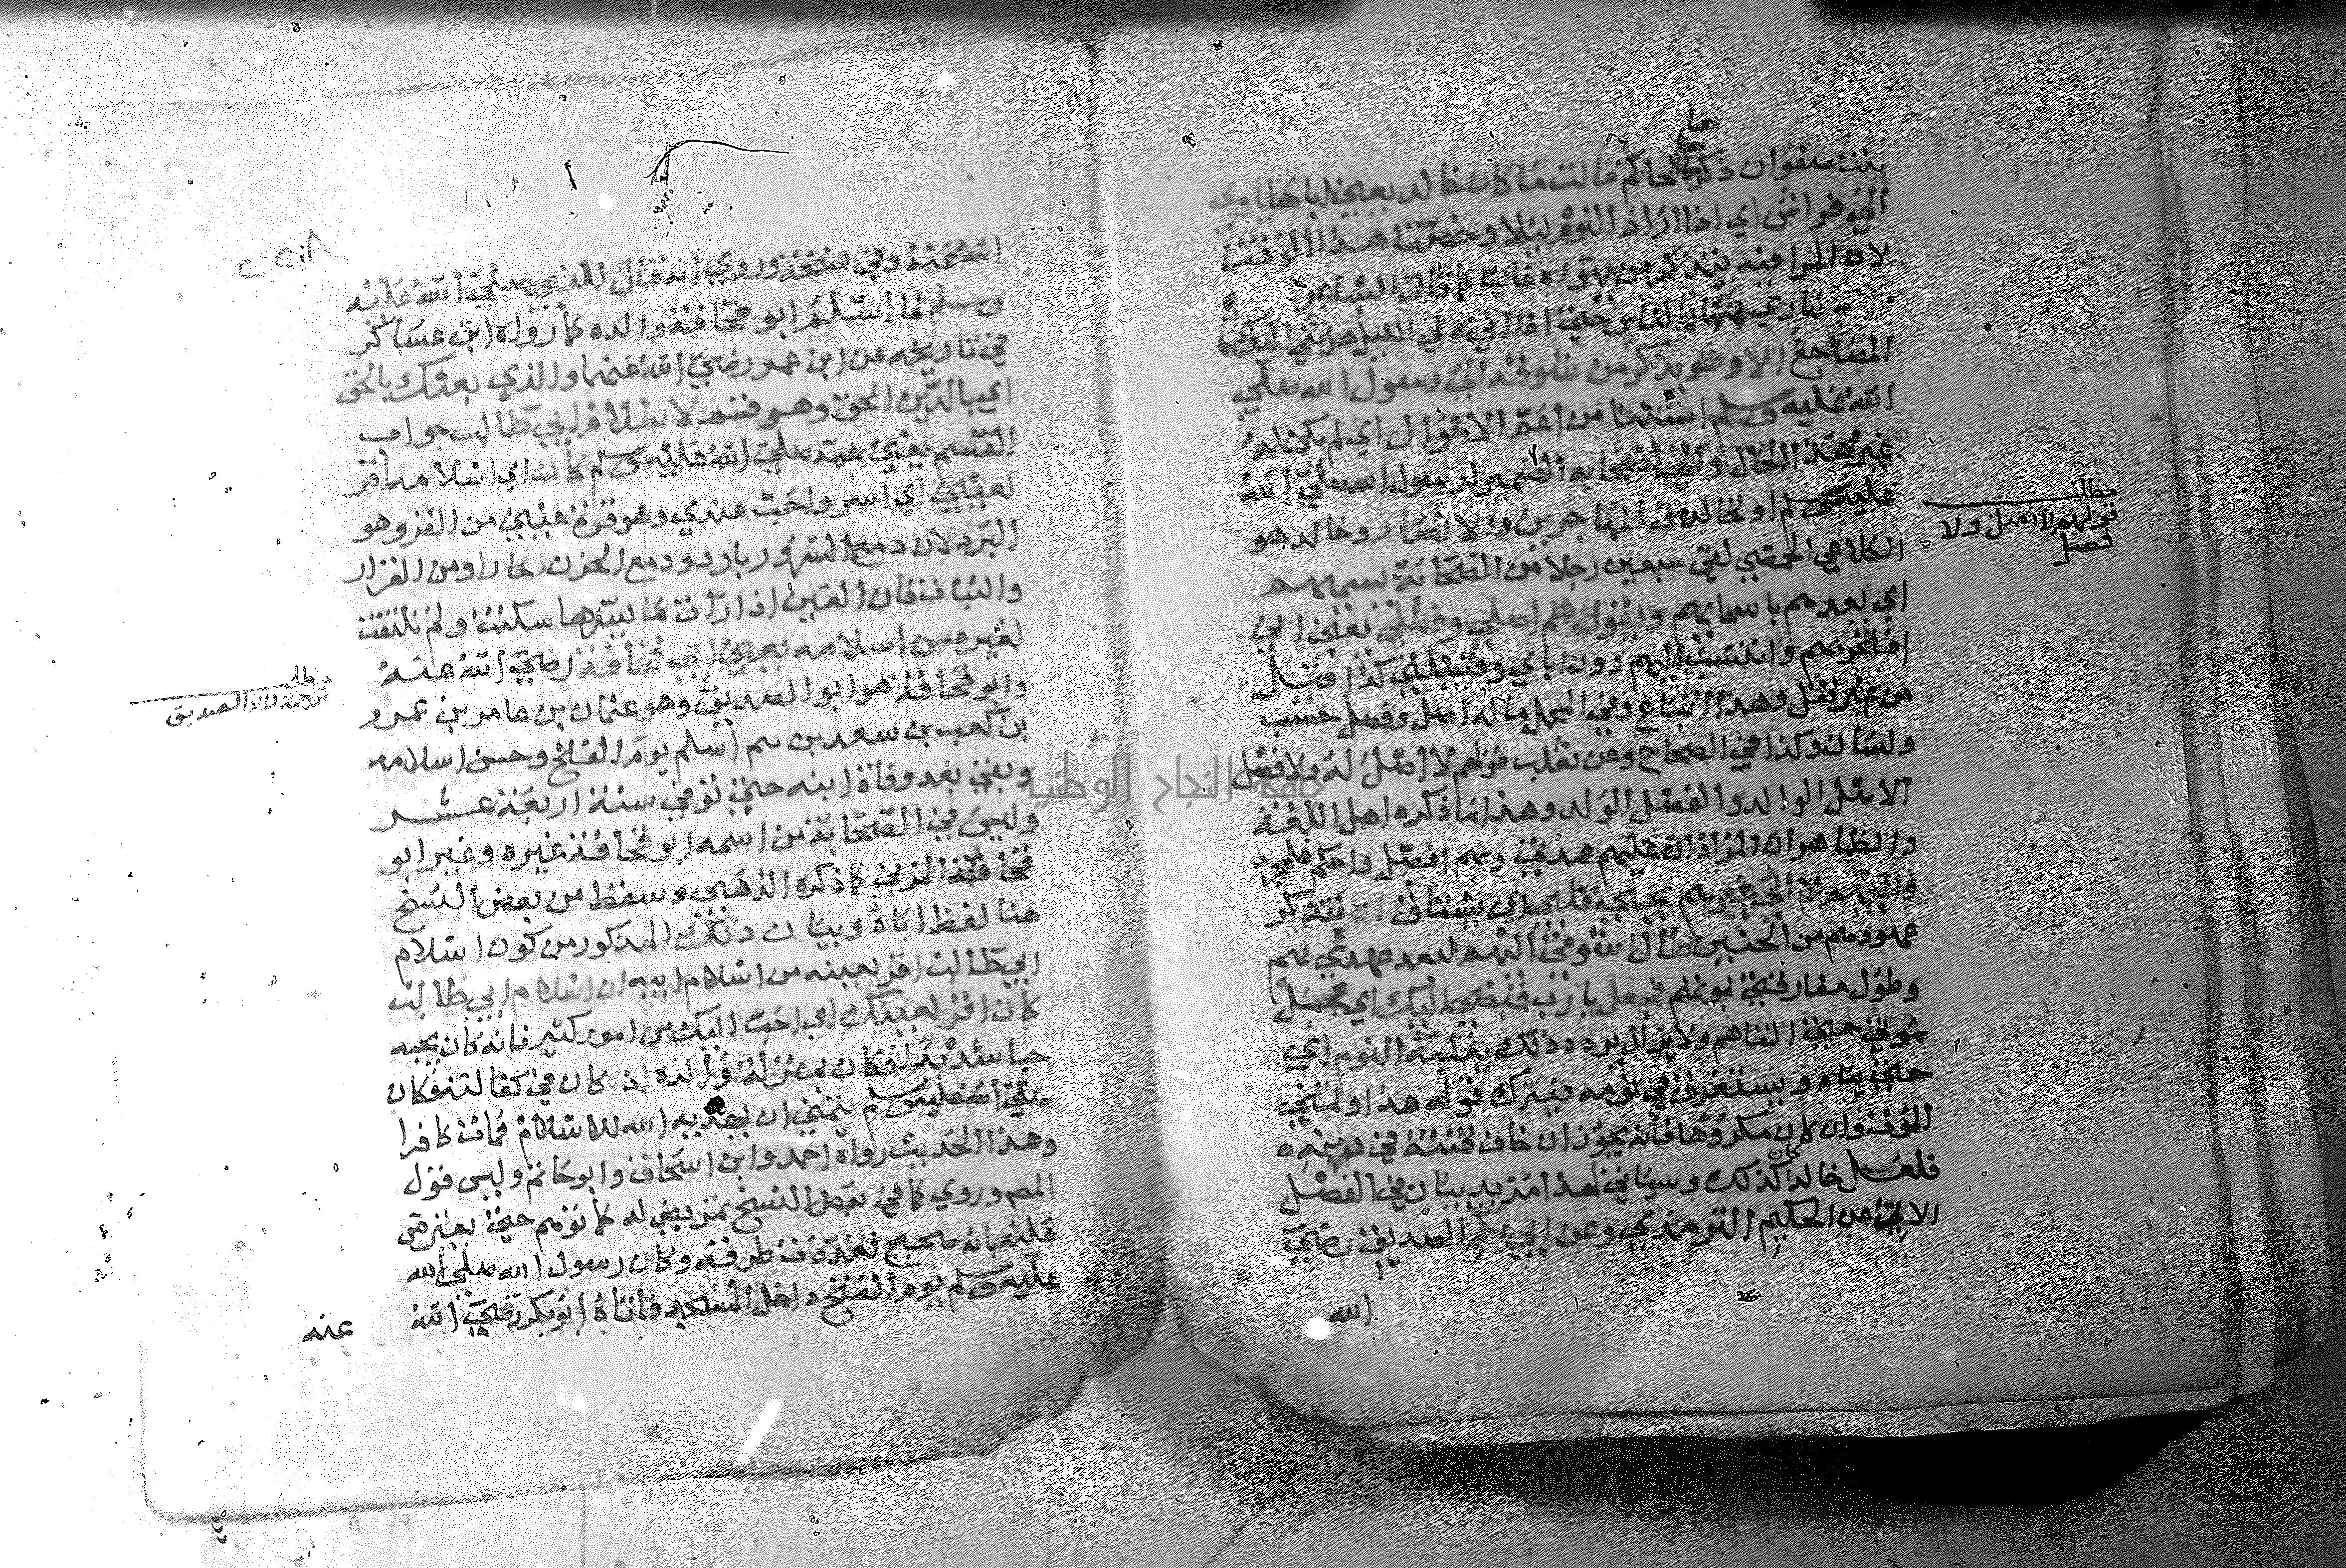 حا
بنت صفوان ذكرها الحاكم قالت ما كان خالد يعني اباها ياوي
الي فراش اي اذا اراد النوم ليلا وخصت هذا الوقت
لان المرا فيه يتذكر من يهواه غالبا كما قال الشاعر
نهاري نهار الناس حتي اذا اتي لي الليل هزتني اليك
المضاجع الا وهو يذكر من شوقه الي رسول الله صلي
الله عليه وسلم استثنا من اعم الاحوال اي لم يكن له
غير هذا الحال والي اصحابه الضمير لرسول الله صلي الله
عليه وسلم او لخالد من المهاجرين والانصار وخالد هو
الكلاعي الحمصي لقي سبعين رجلا من الصحابة يسميهم
اي يعدهم باسمايهم ويقول هم اصلي وفصلي يعني اني
افتخر بهم وانتسب اليهم دون اباي وقبيلتي كذا قيل
من غير نقل وهذا اتباع وفي المجمل ماله اصل وفصل حسب
ولسان وكذا في الصحاح وعن ثعلب قولهم لا اصل له ولا فصل
الاصل الوالد والفصل الولد وهذا ما ذكره اهل اللغة
والظاهر ان المراد ان عليهم عمدتي وبهم افصل واحكم
واليهم لا الي غيرهم يحن قلبي اي يشتاق
عهودهم من الحنين طال شوقي اليهم لبعد عهدي بهم
وطول مفارقتي لهم فعجل يا رب قبضي اليك اي عجل
موتي حتي القاهم ولا يزال يردد ذلك يغلبه النوم اي
حتي ينام ويستغرق في نومه فيترك قوله هذا وتمني
الموت وان كان مكروها فانه يجوز ان خاف فتنة في دينه
فلعل خالدا كان كذلك وسياتي لهذا مزيد بيان في الفصل
الاتي عن الحكيم الترمذي وعن ابي بكر الصديق رضي
الله
مطلب
قولهم لا اصل ولا
فصل
٢٢٨
الله عنه وفي نسخة وروي انه قال للنبي صلي الله عليه
وسلم لما اسلم ابو قحافة والده كما رواه ابن عساكر
في تاريخه عن ابن عمر رضي الله عنهما والذي بعثك بالحق
اي بالدين الحق وهو قسم لاسلام ابي طالب جواب
القسم يعني عمه صلي الله عليه وسلم كان اي اسلامه اقر
لعيني اي اسر واحب عندي وهو قرة عيني من القر وهو
البرد لان دمع السرور بارد ودمع الحزن حار او من القرار
والثبات فان العين اذا رات ما يسرها سكنت ولم تلتفت
لغيره من اسلامه يعني ابي قحافة رضي الله عنه
وابو قحافة هو ابو الصديق وهو عثمان بن عامر بن عمرو
بن كعب بن سعد بن تيم اسلم يوم الفتح وحسن اسلامه
وبقي بعد وفاة ابنه حتي توفي سنة اربعة عشر
وليس في الصحابة من اسمه ابو قحافة غيره وغير ابو
قحافة المزني كما ذكره الذهبي وسقط من بعض النسخ
هنا لفظ اباه وبيان ذلك المذكور من كون اسلام
ابي طالب اقر لعينه من اسلام ابيه ان اسلام ابي طالب
كان اقر لعينك اي احب اليك من امور كثير فانه كان يحبه
حبا شديدا فكان بمنزلة والده اذ كان في كفالته فكان
صلي الله عليه وسلم يتمني ان يهديه الله للاسلام فمات كافرا
وهذا الحديث رواه احمد وابن اسحاق وابو حاتم وليس قول
المص وروي كما في بعض النسخ تمريض له كما توهم حتي يعترض
عليه بانه صحيح تعددت طرقه وكان رسول الله صلي الله
عليه وسلم يوم الفتح داخل المسجد فاتاه ابو بكر رضي الله
عنه
مطلب
ترجمة والد الصديق
جامعة النجاح الوطنية